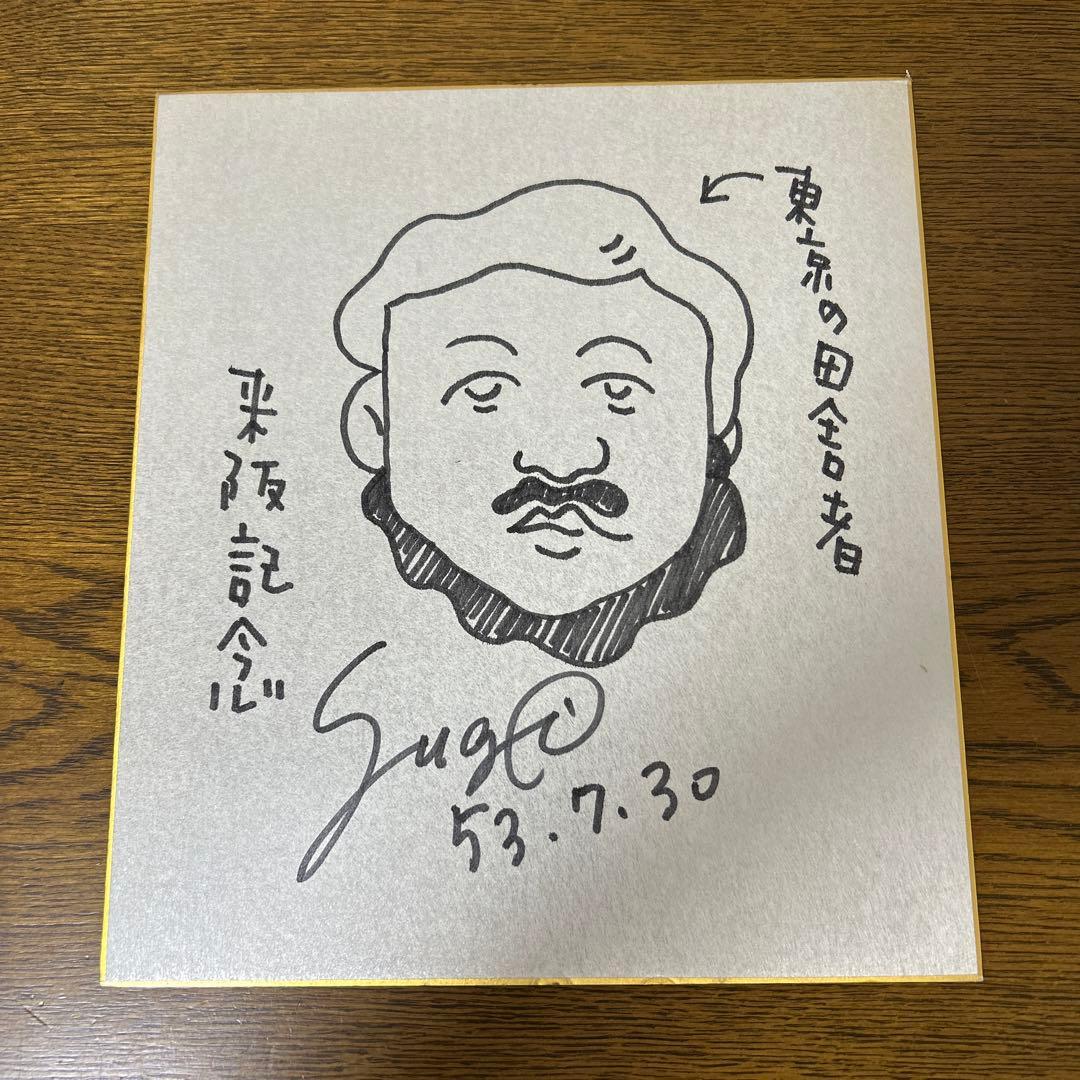 東京の田舎者
来阪記念
Sugi
53.7.30